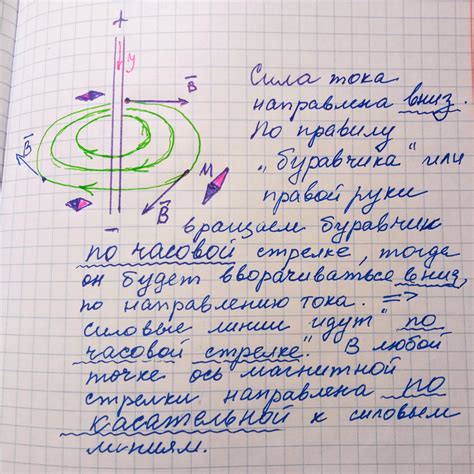 +
У
B
Сила тока
направлена вниз.
По правилу
„буравчика“ или
правой руки
B
M
B
вращаем буравчик
−
по часовой стрелке, тогда
он будет вворачиваться вниз,
по направлению тока. =>
силовые линии идут "по
часовой стрелке". В любой
точке ось магнитной
стрелки направлена по
касательной к силовым
линиям.